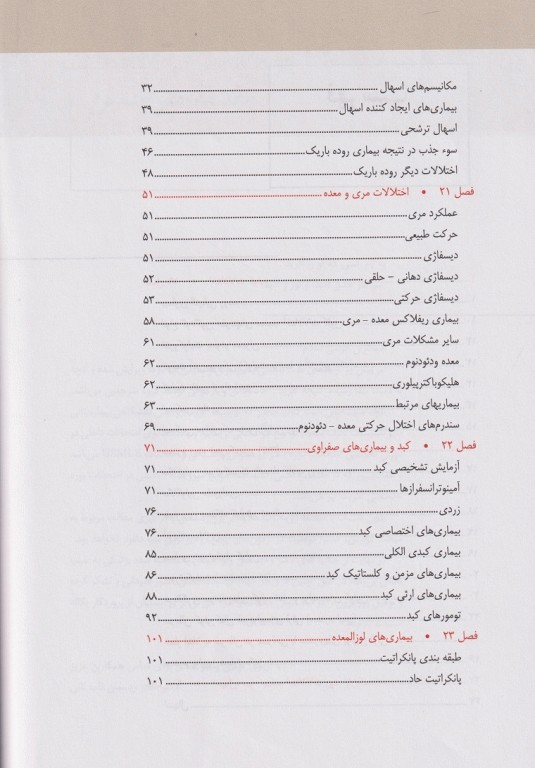 مکانیسم‌های اسهال ........ ۳۲
بیماری‌های ایجاد کننده اسهال ........ ۳۹
اسهال ترشحی ........ ۳۹
سوء جذب در نتیجه بیماری روده باریک ........ ۴۶
اختلالات دیگر روده باریک ........ ۴۸
فصل ۲۱ • اختلالات مری و معده ........ ۵۱
عملکرد مری ........ ۵۱
حرکت طبیعی ........ ۵۱
دیسفاژی ........ ۵۱
دیسفاژی دهانی - حلقی ........ ۵۲
دیسفاژی حرکتی ........ ۵۳
بیماری ریفلاکس معده - مری ........ ۵۸
سایر مشکلات مری ........ ۶۱
معده ودئودنوم ........ ۶۲
هلیکوباکترپیلوری ........ ۶۲
بیماریهای مرتبط ........ ۶۳
سندرم‌های اختلال حرکتی معده - دئودنوم ........ ۶۹
فصل ۲۲ • کبد و بیماری‌های صفراوی ........ ۷۱
آزمایش تشخیصی کبد ........ ۷۱
آمینوترانسفرازها ........ ۷۱
زردی ........ ۷۶
بیماری‌های اختصاصی کبد ........ ۷۶
بیماری کبدی الکلی ........ ۸۵
بیماری‌های مزمن و کلستاتیک کبد ........ ۸۶
بیماری‌های ارثی کبد ........ ۸۸
تومورهای کبد ........ ۹۲
فصل ۲۳ • بیماری‌های لوزالمعده ........ ۱۰۱
طبقه بندی پانکراتیت ........ ۱۰۱
پانکراتیت حاد ........ ۱۰۱